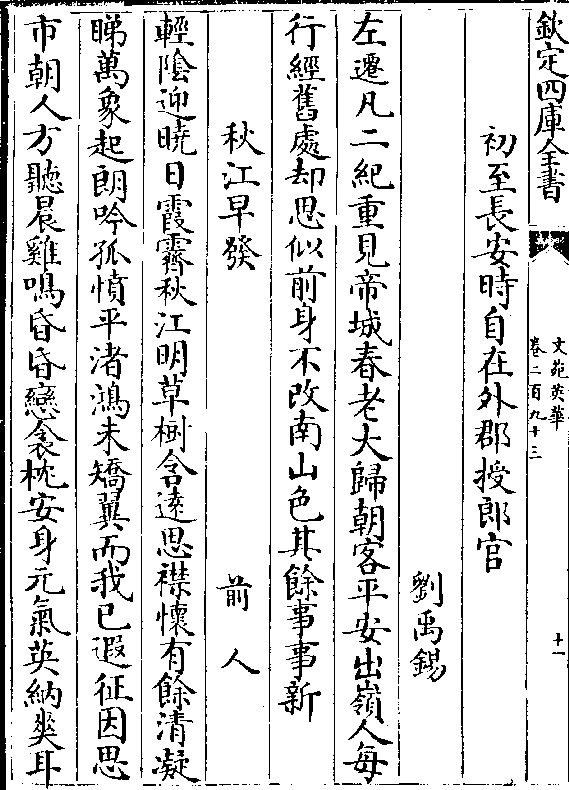 欽定四庫全書
文苑英華
卷二百九十三
十一
初至長安時自在外郡授郎官
劉禹錫
左遷凡二紀重見帝城春老大歸朝客平安出嶺人每
行經舊處却思似前身不改南山色其餘事事新
秋江早發
前人
輕陰迎曉日霞霽秋江明草樹含逺思襟懷有餘清凝
睇萬象起朗吟孤憤平渚鴻未矯翼而我已遐征因思
市朝人方聽晨雞鳴昏昏戀衾枕安身元氣英納爽耳